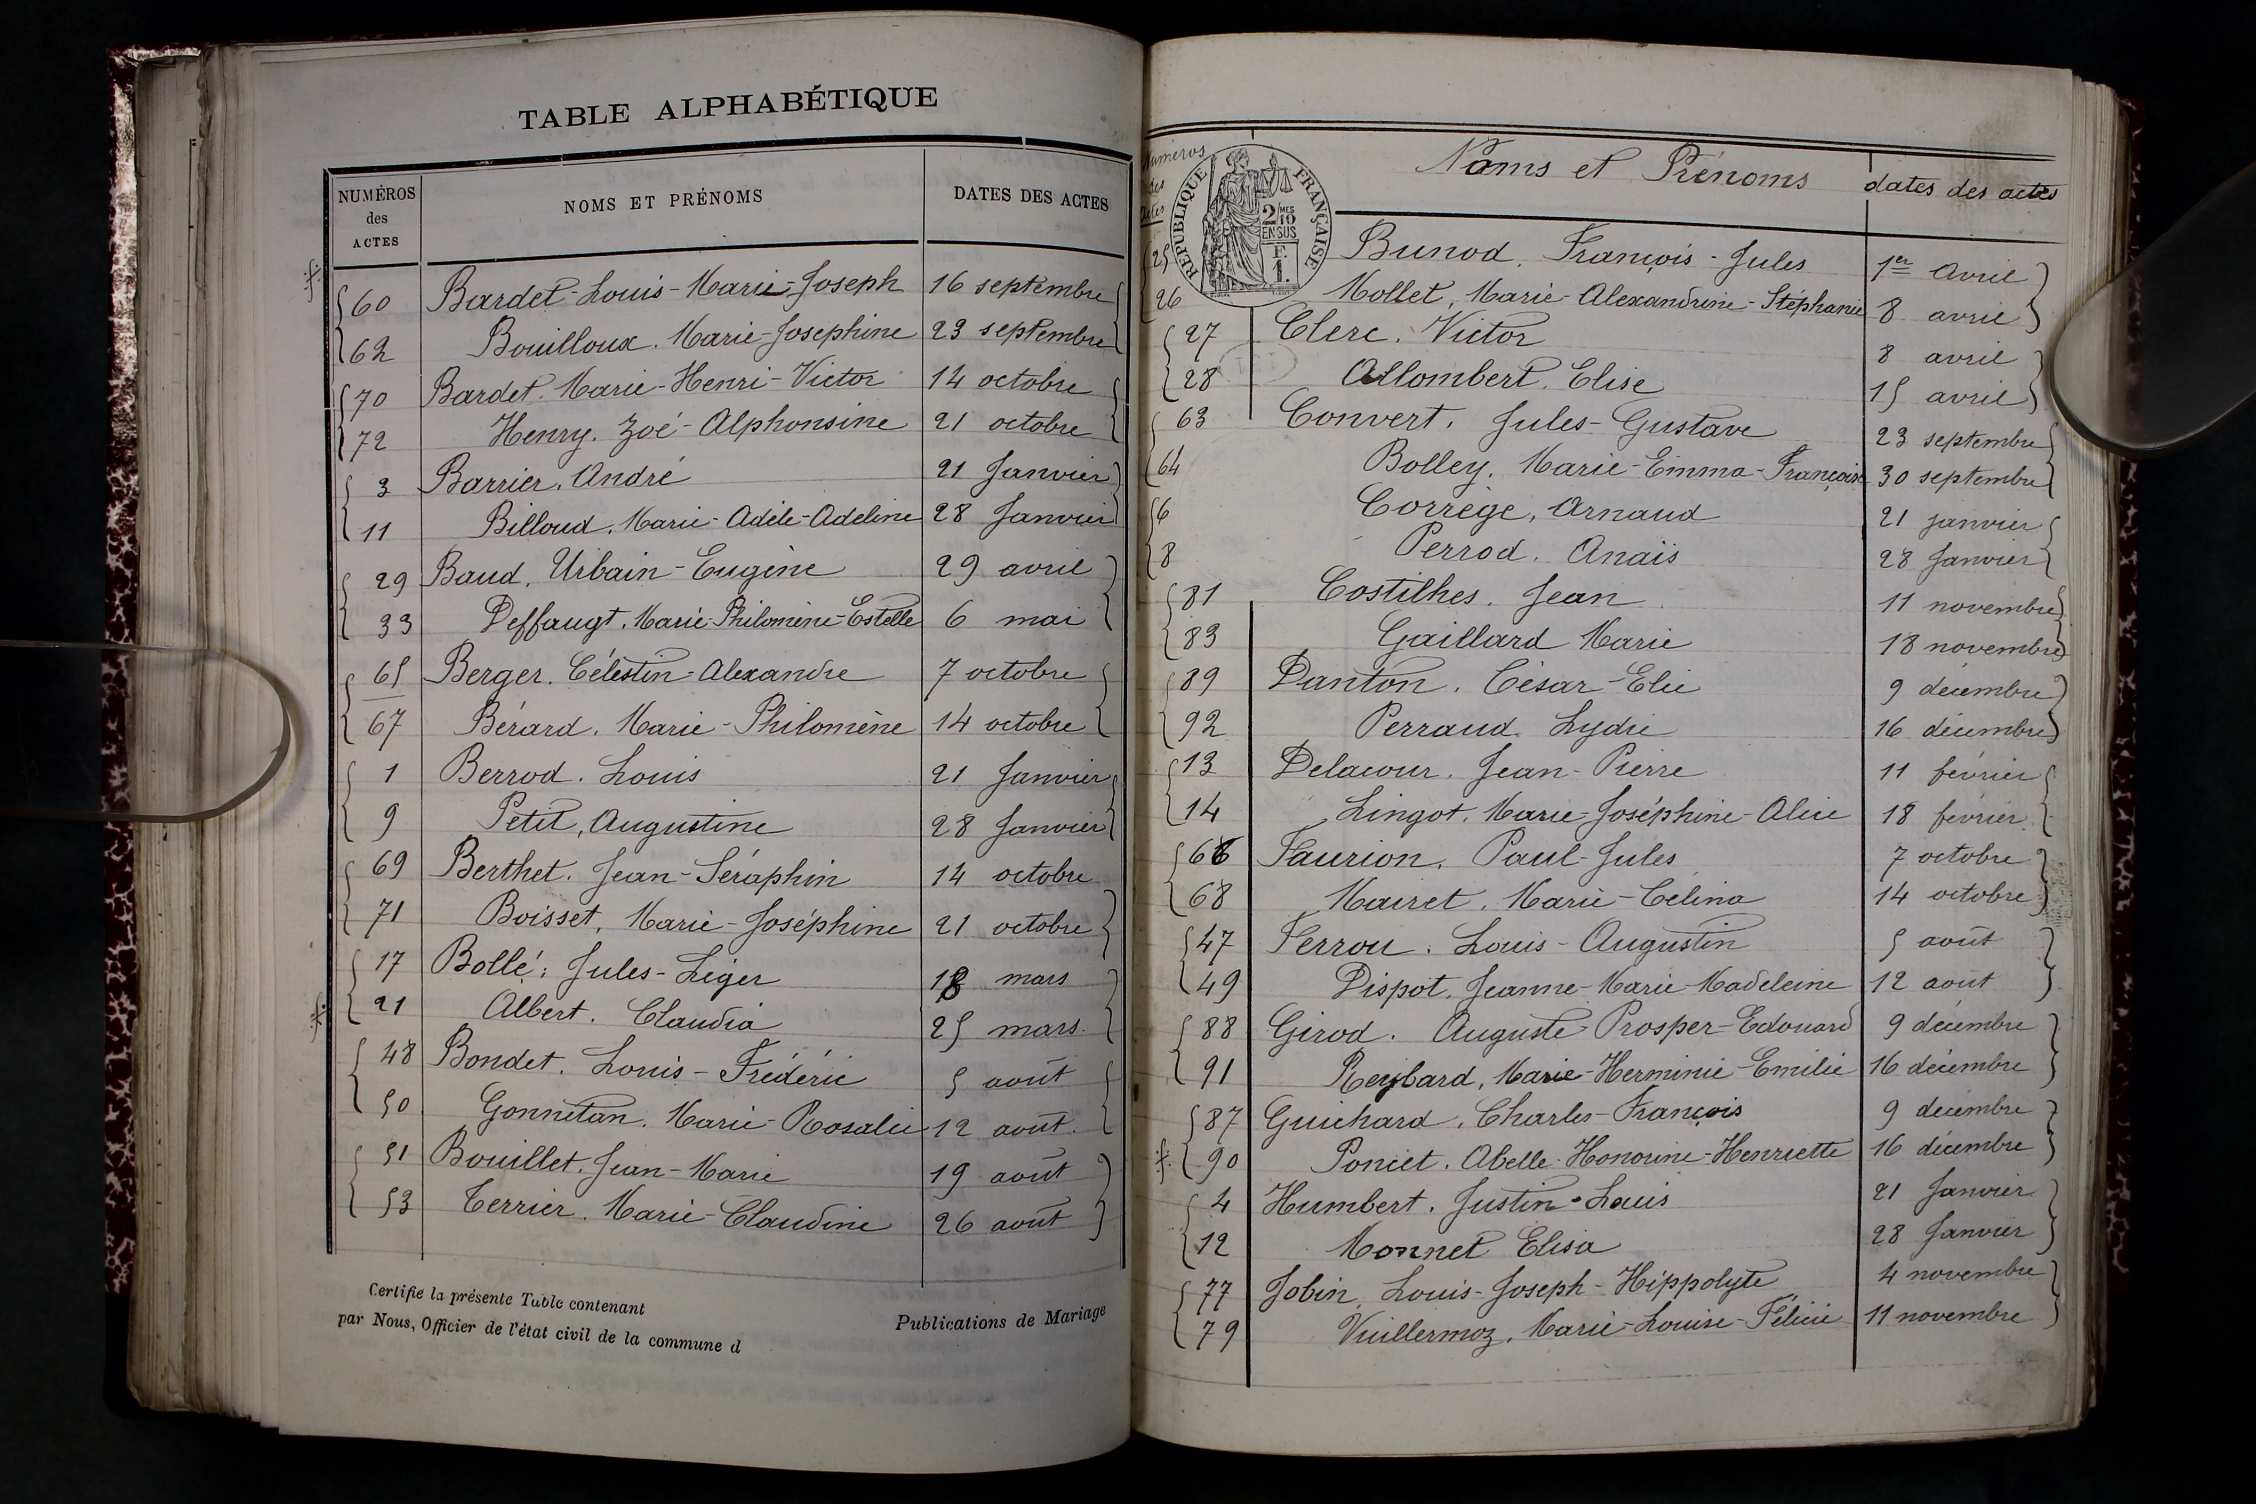 TABLE ALPHABÉTIQUE
NUMÉROS des ACTES NOMS ET PRÉNOMS DATES DES ACTES
60 Bardet Louis-Marie-Joseph 16 septembre
62 Bouilloux. Marie-Josephine 23 septembre
70 Bardet. Marie-Henri-Victor 14 octobre
72 Henry. Zoé-Alphonsine 21 octobre
3 Barrier. André 21 Janvier
11 Billoud. Marie-Adèle-Adeline 28 Janvier
29 Baud, Urbain-Eugène 29 avril
33 Deffaugt. Marie-Philomène-Estelle 6 mai
65 Berger. Célestin-Alexandre 7 octobre
67 Bérard. Marie-Philomène 14 octobre
1 Berrod. Louis 21 Janvier
9 Petit, Augustine 28 Janvier
69 Berthet. Jean-Séraphin 14 octobre
71 Boisset, Marie-Joséphine 21 octobre
17 Bollé; Jules-Léger 18 mars
21 Albert. Claudia 25 mars
48 Bondet. Louis-Frédéric 5 août
50 Gonnetan. Marie-Rosalie 12 août
51 Bouillet. Jean-Marie 19 août
53 Terrier. Marie-Claudine 26 août
Certifie la présente Table contenant Publications de Mariage
par Nous, Officier de l'état civil de la commune d
Numéros des actes Noms et Prénoms dates des actes
RÉPUBLIQUE FRANÇAISE
2 MES 10
EN SUS
F.
1.
25 Bunod. François-Jules 1er avril
26 Mollet, Marie-Alexandrine-Stéphanie 8 avril
27 Clerc. Victor 8 avril
28 Allombert. Elise 15 avril
63 Convert. Jules-Gustave 23 septembre
64 Bolley. Marie-Emma-Françoise 30 septembre
6 Corrège, Arnaud 21 janvier
8 Perrod. Anaïs 28 Janvier
81 Costilhes. Jean 11 novembre
83 Gaillard Marie 18 novembre
89 Danton. César-Elie 9 décembre
92 Perraud. Lydie 16 décembre
13 Delacour. Jean-Pierre 11 février
14 Lingot. Marie-Joséphine-Alice 18 février
66 Faurion. Paul-Jules 7 octobre
68 Mairet. Marie-Célina 14 octobre
47 Ferrou. Louis-Augustin 5 août
49 Dispot. Jeanne-Marie-Madeleine 12 août
88 Girod. Auguste-Prosper-Edouard 9 décembre
91 Reybard, Marie-Herminie-Emilie 16 décembre
87 Guichard. Charles-François 9 décembre
90 Poncet. Abelle-Honorine-Henriette 16 décembre
4 Humbert. Justin-Louis 21 Janvier
12 Monnet Elisa 28 Janvier
77 Jobin Louis-Joseph-Hippolyte 4 novembre
79 Vuillermoz. Marie-Louise-Félicie 11 novembre